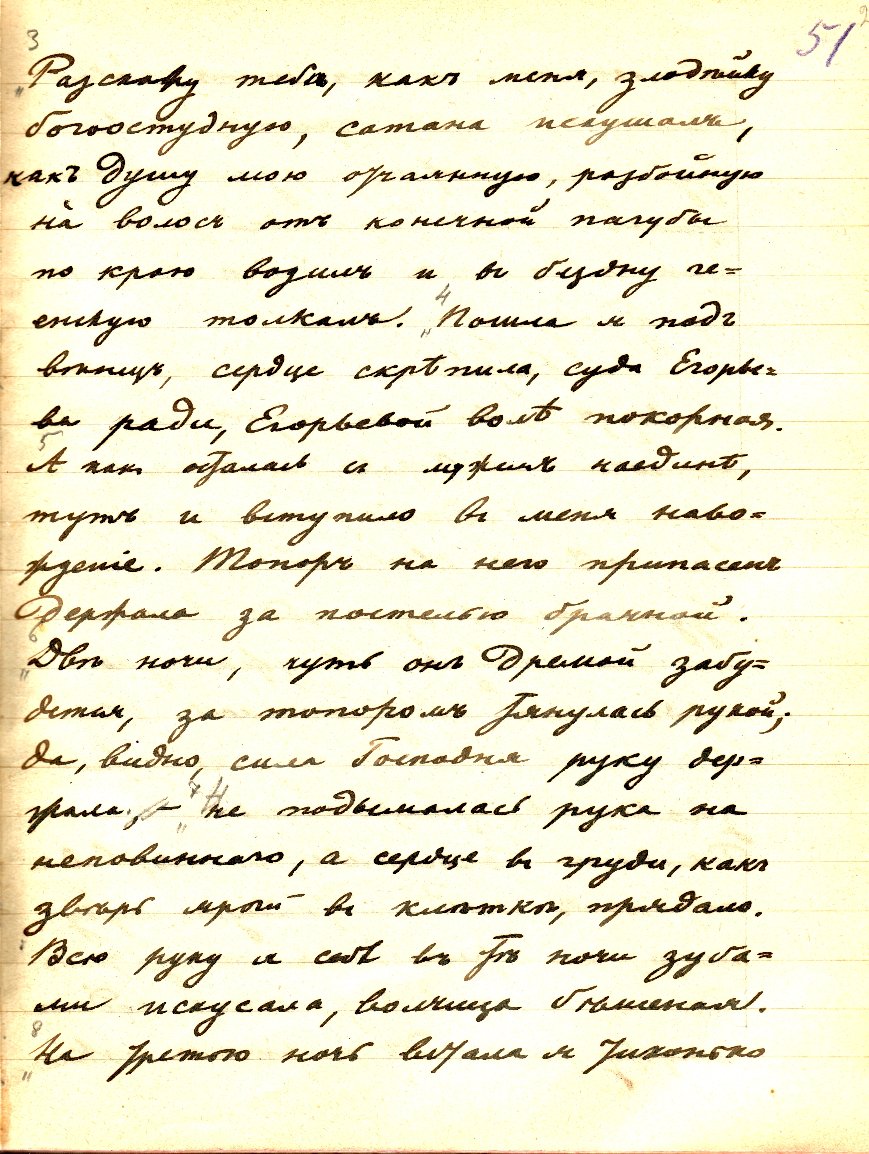 3
51
2
„Разскажу тебѣ, какъ меня, злодѣйку
богоостудную, сатана искушалъ,
какъ душу мою отчаянную, разбойную
на́ волосъ отъ конечной пагубы
по краю водилъ и въ бездну ге=
енскую толкалъ. 4 „Пошла я подъ
вѣнецъ, сердце скрѣпила, суда Егорье=
ва ради, Егорьевой волѣ покорная.
5
А какъ осталась съ мужемъ наединѣ,
тутъ и вступило въ меня наво=
жденіе. Топоръ на него припасенъ
держала за постелью брачной.
6
„Двѣ ночи, чуть онъ дремой забу=
детъ, за топоромъ тянулась рукой;
да, видно, сила Господня руку дер=
жала. 7 „Не подымалась рука на
неповиннаго, а сердце въ груди, какъ
звѣрь ярый въ клѣткѣ, прядало.
Всю руку я себѣ въ тѣ ночи зуба=
ми искусала, волчица бѣшеная.
8
„На третью ночь встала я тихонько